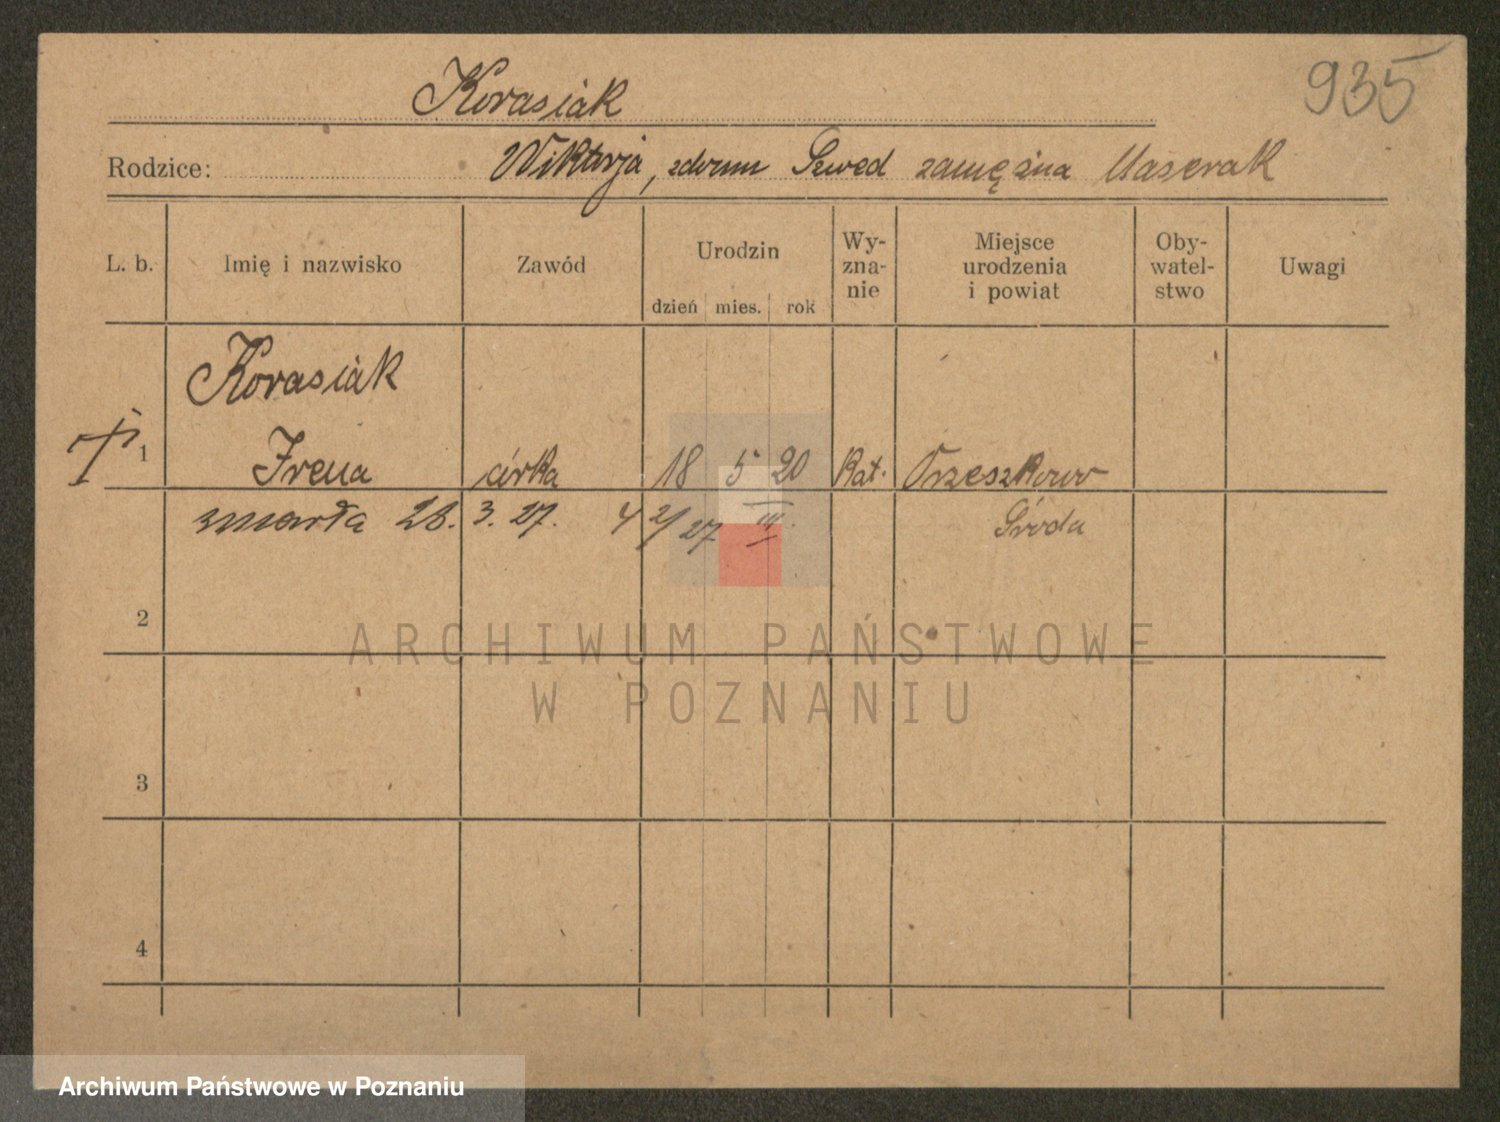 935
Korasiak
Rodzice: Wiktorja, zdomu Szwed zamężna Maserak
L. b. Imię i nazwisko Zawód Urodzin dzień mies. rok Wy-zna-nie Miejsce urodzenia i powiat Oby-watel-stwo Uwagi
Korasiak
1 Irena córka 18 5 20 Kat. Orzeszkowo
zmarła 28. 3. 27. 4 2/27 III. Środa
2
ARCHIWUM PAŃSTWOWE
W POZNANIU
3
4
Archiwum Państwowe w Poznaniu